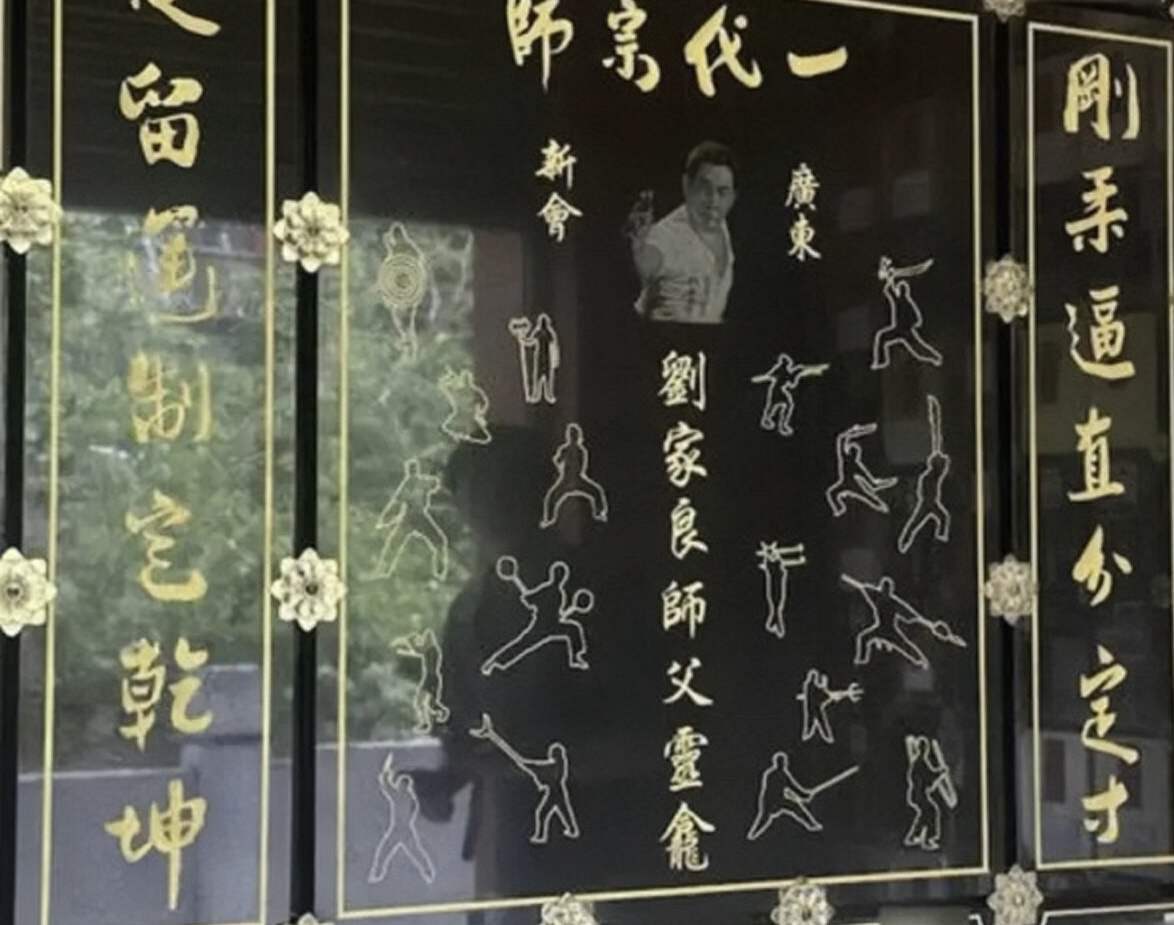 剛柔逼直分定寸
一代宗師
廣東
新會
劉家良師父靈龕
留運制定乾坤